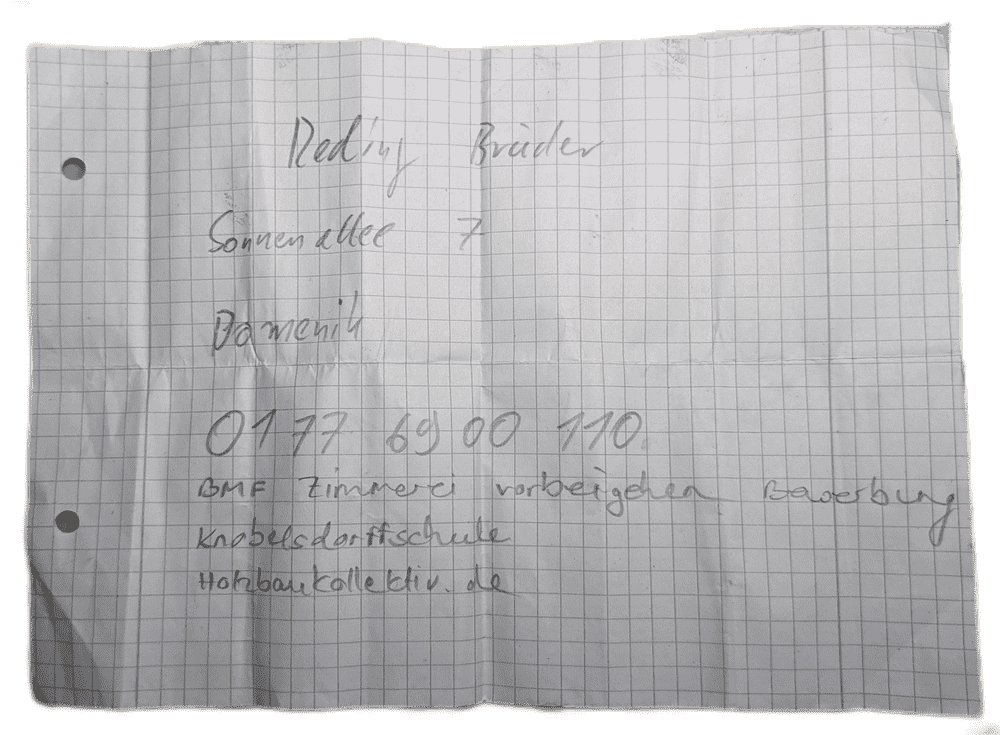 Reding Brüder
Sonnenallee 7
Domenik
0177 6900 110
BMF Zimmerei vorbeigehen Bewerbung
Knobelsdorffschule
Holzbaukollektiv.de